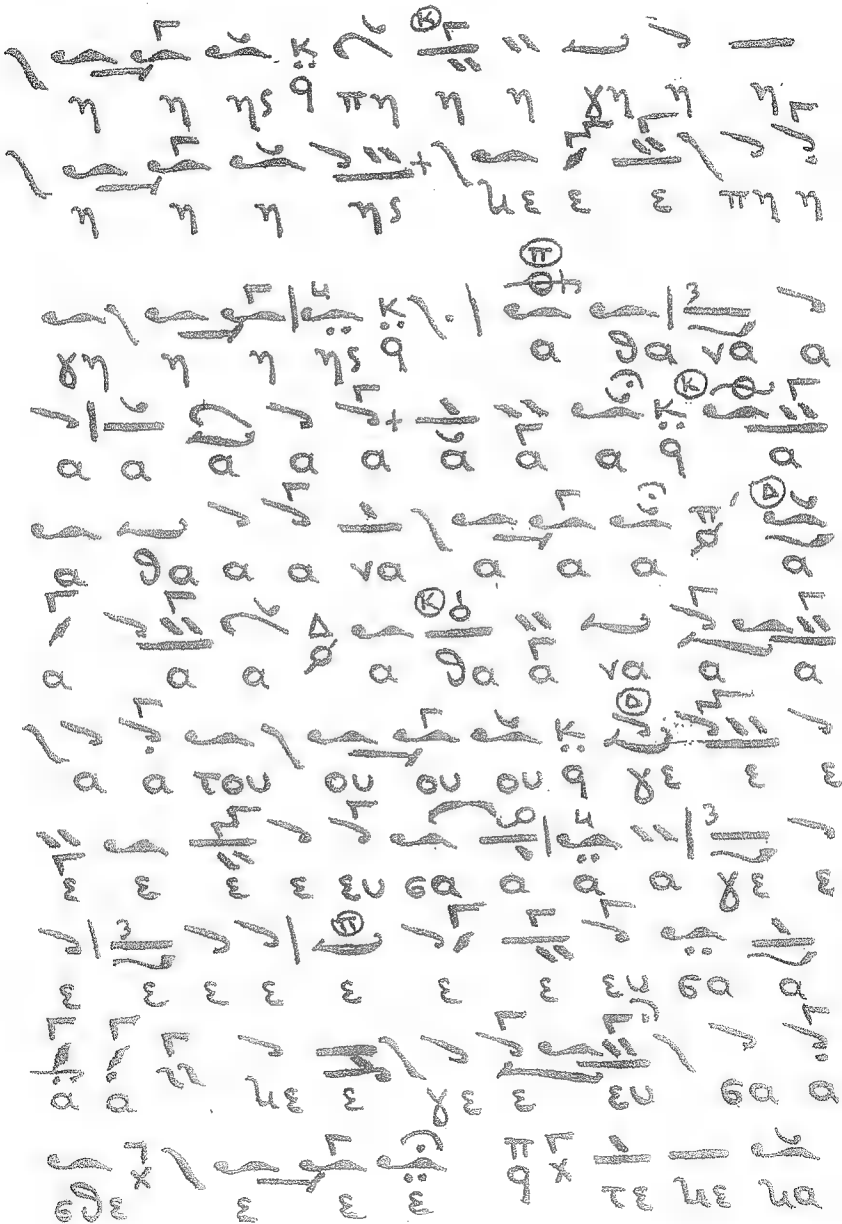 η η ης πη η η γη η η
η η η ης με ε ε πη η
γη η η ης α θα να α
α α α α α α α α α
α θα α α να α α α α
α α α α θα α να α α
α α του ου ου ου γε ε ε
ε ε ε ε ευ σα α α α γε ε
ε ε ε ε ε ε ε ευ σα α
α α με ε γε ε ευ σα α
σθε ε ε ε τε με μα